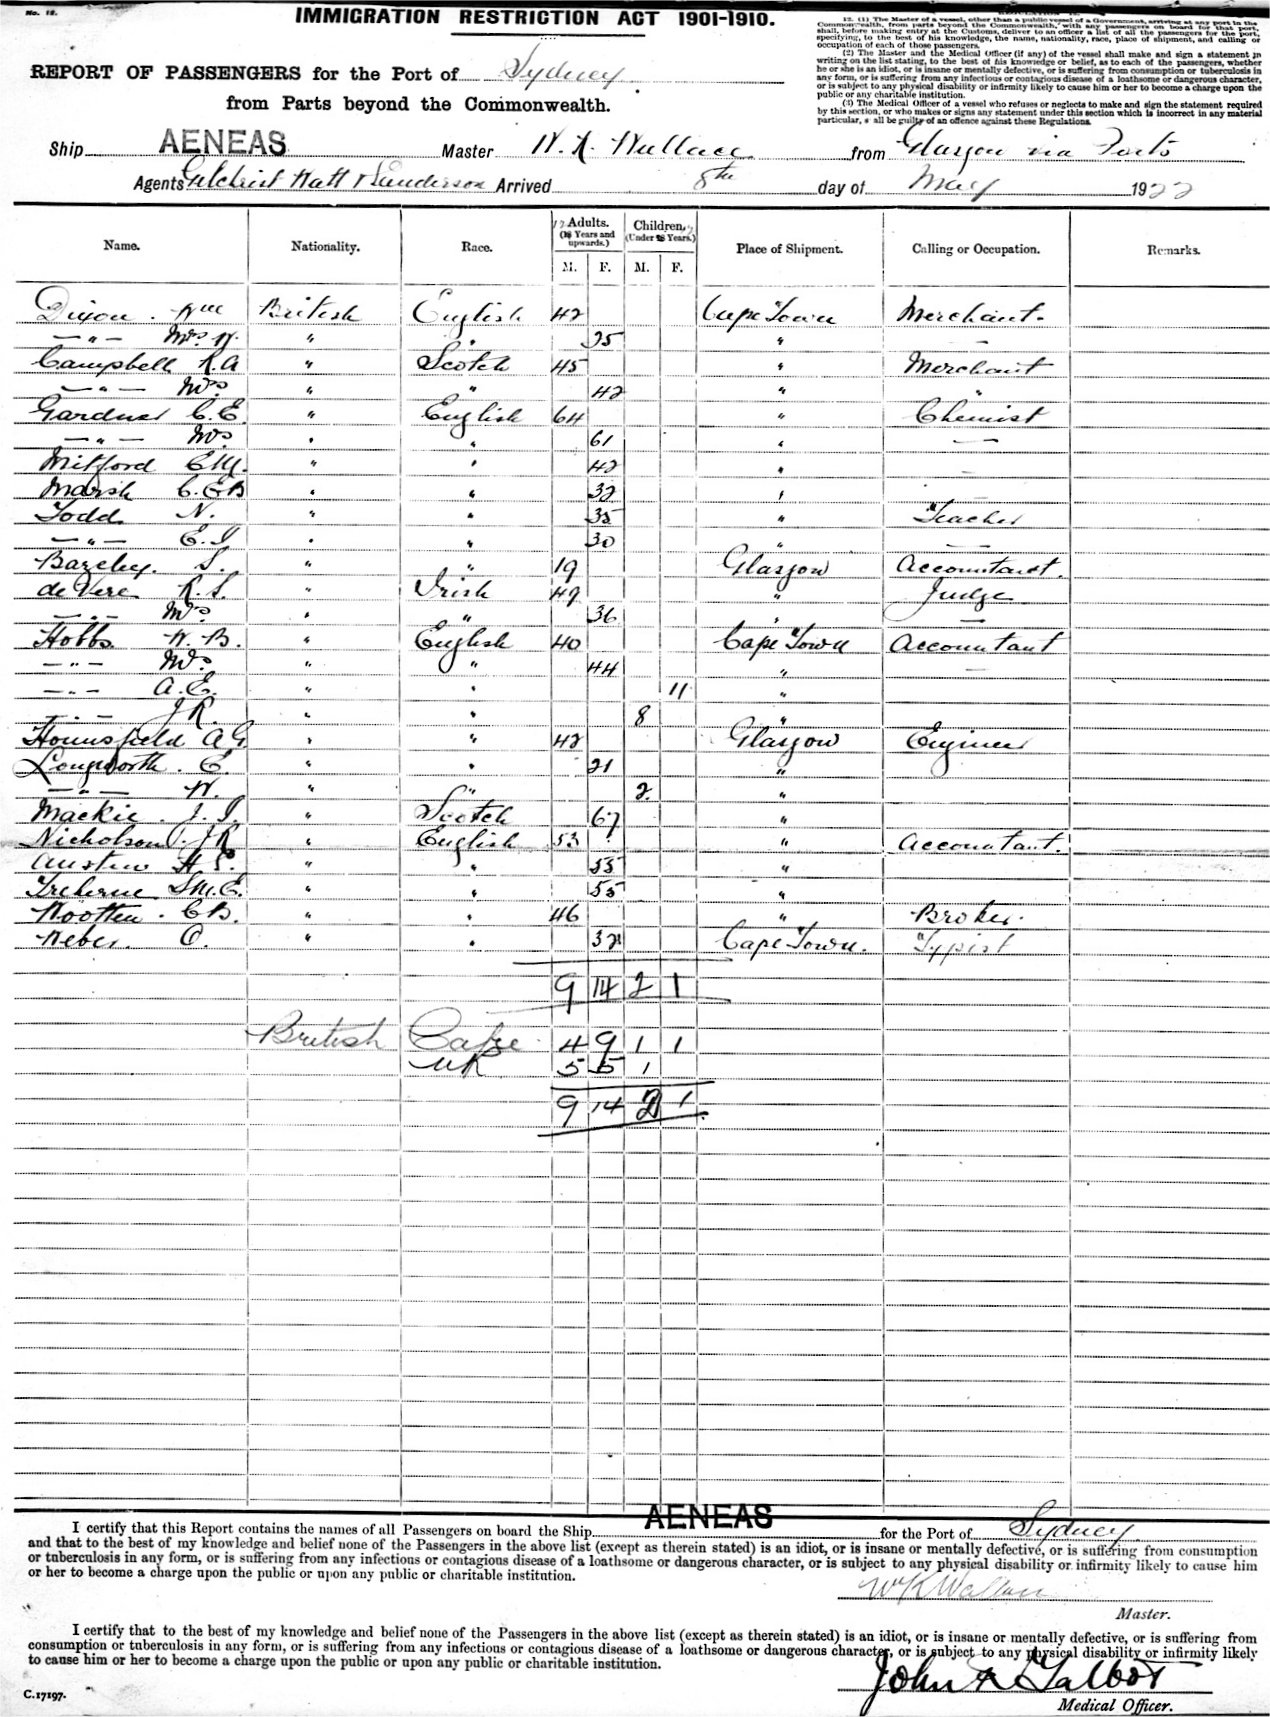 No. 18.
IMMIGRATION RESTRICTION ACT 1901-1910.
12. (1) The Master of a vessel, other than a public vessel of a Government, arriving at any port in the
Commonwealth, from parts beyond the Commonwealth, with any passengers on board for that port,
shall, before making entry at the Customs, deliver to an officer a list of all the passengers for the port,
specifying, to the best of his knowledge, the name, nationality, race, place of shipment, and calling or
occupation of each of those passengers.
(2) The Master and the Medical Officer (if any) of the vessel shall make and sign a statement in
writing on the list stating, to the best of his knowledge or belief, as to each of the passengers, whether
he or she is an idiot, or is insane or mentally defective, or is suffering from consumption or tuberculosis in
any form, or is suffering from any infectious or contagious disease of a loathsome or dangerous character,
or is subject to any physical disability or infirmity likely to cause him or her to become a charge upon the
public or any charitable institution.
(3) The Medical Officer of a vessel who refuses or neglects to make and sign the statement required
by this section, or who makes or signs any statement under this section which is incorrect in any material
particular, shall be guilty of an offence against these Regulations.
REPORT OF PASSENGERS for the Port of Sydney
from Parts beyond the Commonwealth.
Ship AENEAS Master W. K. Wallace from Glasgow via Ports
Agents Gilchrist Watt & Sanderson Arrived 8th day of May 1922
Name. Nationality. Race. 17 Adults. (16 Years and upwards.) Children, (Under 16 Years.) Place of Shipment. Calling or Occupation. Remarks.
M. F. M. F.
Dixon . Wm British English 42 Cape Town Merchant.
—"— Mrs W. " " 25 " —
Campbell R.A " Scotch 45 " Merchant
—"— Mrs " " 42 " "
Gardner C.E. " English 64 " Chemist
—"— Mrs " " 61 " —
Mitford E.M. " " 42 " —
Marsh C.EB " " 32 " —
Todd N. " " 35 " Teacher
—"— E.I " " 30 " —
Bazeley. S. " " 19 Glasgow Accountant.
de Vere R.S. " Irish 49 " Judge
—"— Mrs " " 36 " —
Hobbs W.B. " English 40 Cape Town Accountant
—"— Mrs " " 44 " —
—"— A.E. " " 11 "
—"— J R. " " 8 "
Hounsfield A G " " 42 Glasgow Engineer
Longworth . E. " " 21 "
—"— W. " " 2 "
Mackie . J. I. " Scotch 67 "
Nicholson J R " English 53 " Accountant.
Austin H " " 55 "
Treherne S.M.E. " " 55 "
Wootten . C B. " " 46 " Broker.
Weber. O. " " 32 Cape Town. Typist
9 14 2 1
British Cape 4 9 1 1
UK 5 5 1
9 14 2 1
I certify that this Report contains the names of all Passengers on board the Ship AENEAS for the Port of Sydney
and that to the best of my knowledge and belief none of the Passengers in the above list (except as therein stated) is an idiot, or is insane or mentally defective, or is suffering from consumption
or tuberculosis in any form, or is suffering from any infectious or contagious disease of a loathsome or dangerous character, or is subject to any physical disability or infirmity likely to cause him
or her to become a charge upon the public or upon any public or charitable institution.
W K Wallace
Master.
I certify that to the best of my knowledge and belief none of the Passengers in the above list (except as therein stated) is an idiot, or is insane or mentally defective, or is suffering from
consumption or tuberculosis in any form, or is suffering from any infectious or contagious disease of a loathsome or dangerous character, or is subject to any physical disability or infirmity likely
to cause him or her to become a charge upon the public or upon any public or charitable institution.
John A Talbot
Medical Officer.
C.17197.